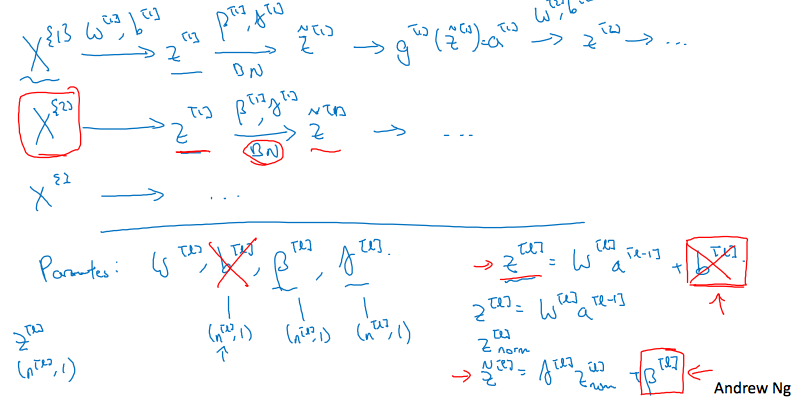 X^{1} W^[1], b^[1] → z^[1] β^[1], γ^[1] BN → z̃^[1] → g^[1](z̃^[1]) = a^[1] → W^[2], b^[2] z^[2] → ...
X^{2} → z^[1] β^[1], γ^[1] BN → z̃^[1] → ...
X^{3} → ...
Parameters: W^[l], b^[l], β^[l], γ^[l].
(n^[l], 1) (n^[l], 1) (n^[l], 1)
z^[l]
(n^[l], 1)
→ z^[l] = W^[l] a^[l-1] + b^[l].
z^[l] = W^[l] a^[l-1]
z^[l]norm
→ z̃^[l] = γ^[l] z^[l]norm + β^[l] ←
Andrew Ng